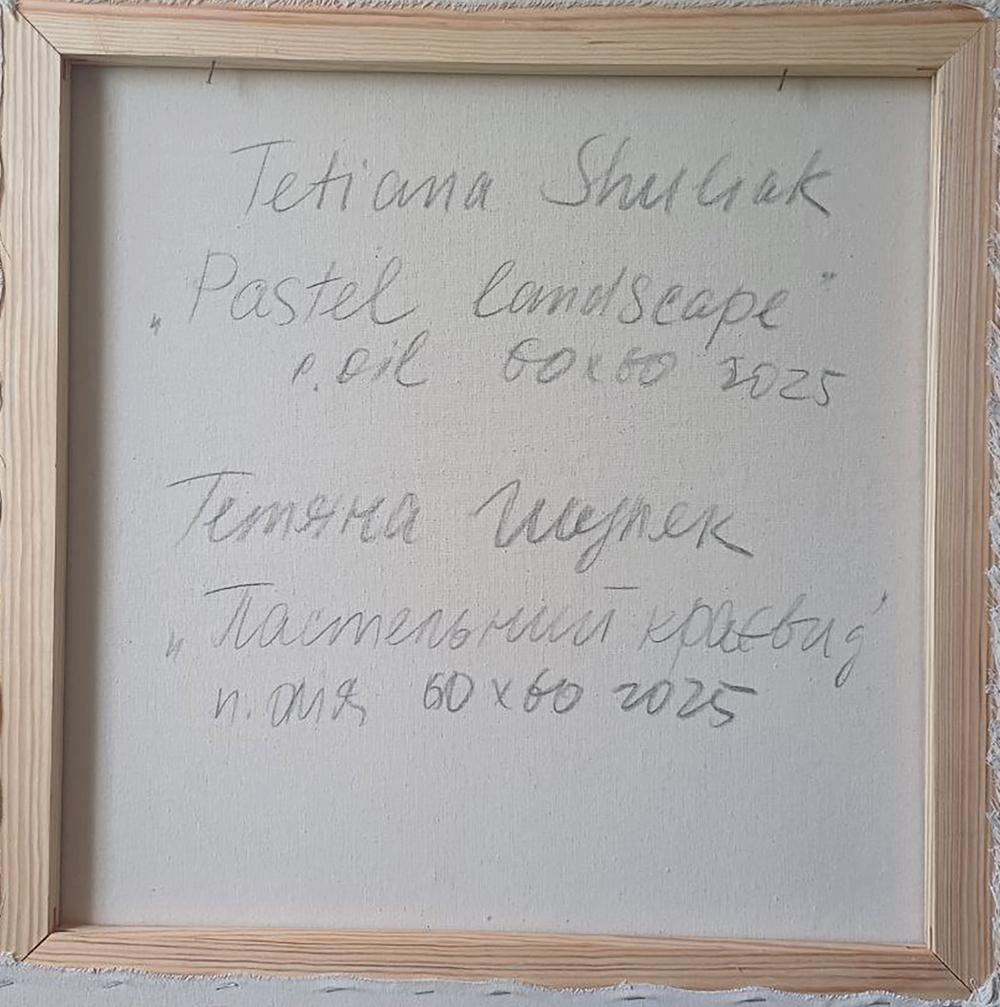 Tetiana Shuliak
„Pastel landscape"
c. oil 60x60 2025
Тетяна Шуляк
„Пастельний краєвид"
п. олія 60x60 2025